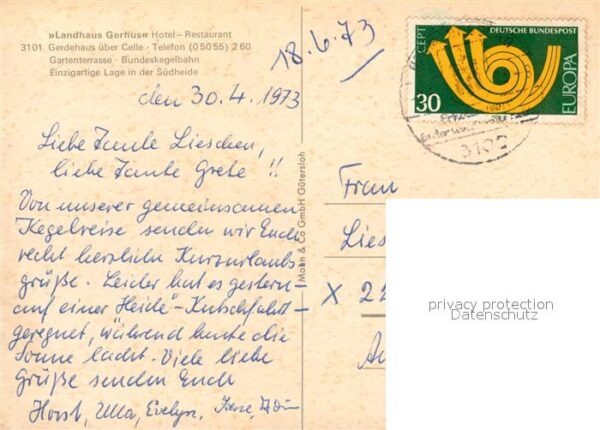 »Landhaus Gerhus« Hotel – Restaurant
3101 Gerdehaus über Celle · Telefon (0 50 55) 2 60
Gartenterrasse · Bundeskegelbahn
Einzigartige Lage in der Südheide
18.6.73
den 30.4.1973
Liebe Tante Lieschen,
liebe Tante Grete !!
Von unserer gemeinsamen
Kegelreise senden wir Euch
recht herzliche Kurzurlaubs
grüße. Leider hat es gestern
auf einer "Heide"-Kutschfahrt
geregnet, während heute die
Sonne lacht. Viele liebe
Grüße senden Euch
Horst, Ulla, Evelyn,
Mohn & Co GmbH Gütersloh
CEPT
DEUTSCHE BUNDESPOST
EUROPA
30
3102
Frau
Lies
X 22
privacy protection
Datenschutz